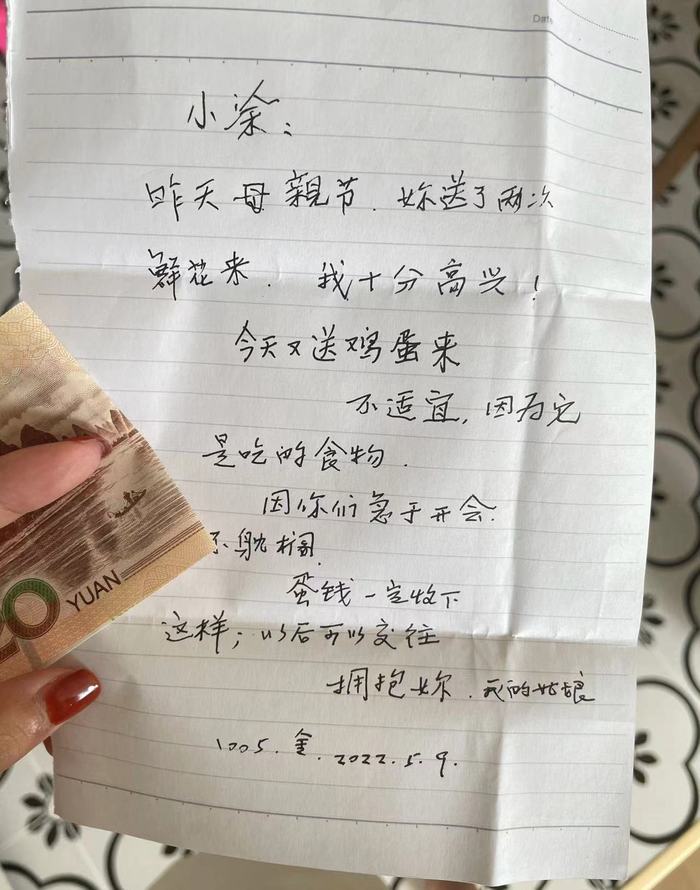 Date
小涂：
昨天母親节．妳送了两次
鲜花来．我十分高兴！
今天又送鸡蛋来
不适宜，因为它
是吃的食物．
因你们急于开会．
不耽搁．
蛋钱一定收下
这样；以后可以交往
拥抱妳．我的姑娘
1005．金．2022.5.9.
20 YUAN